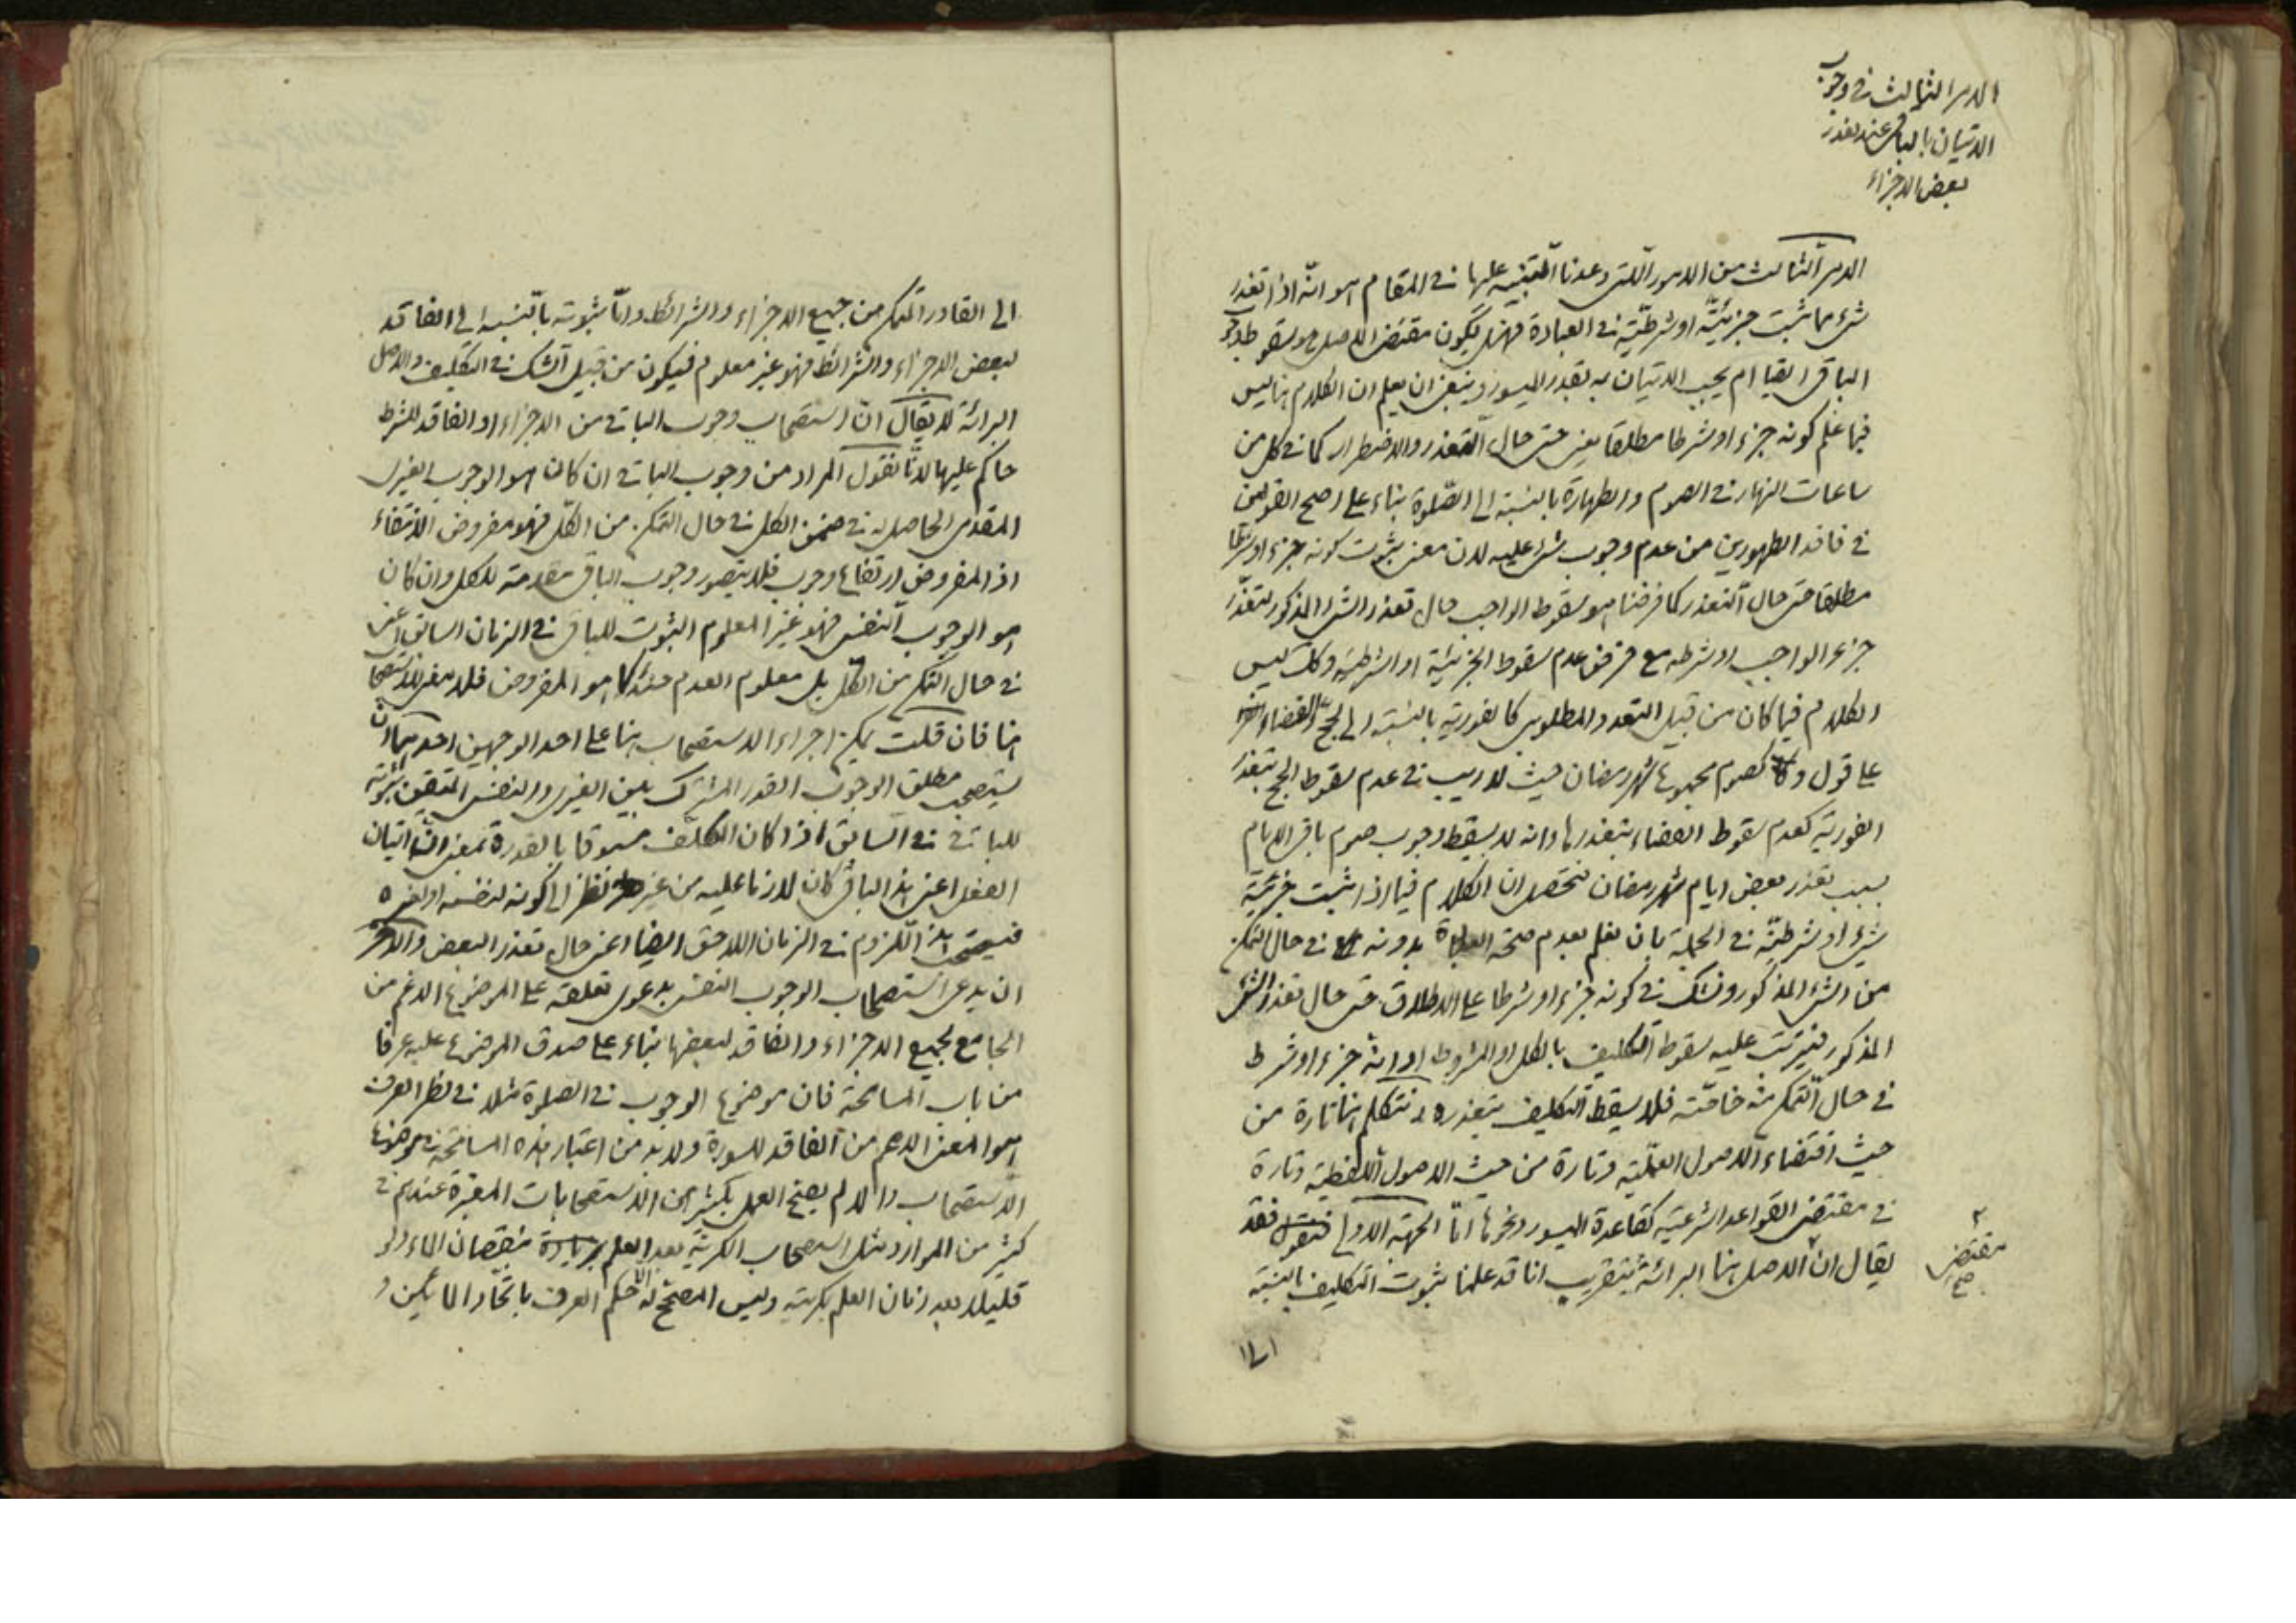 الامر الثالث في وجوب
الاتيان بالباقي عند تعذر
بعض الاجزاء
الامر الثالث من الامور التي وعدنا التنبيه عليها في المقام هو انّه اذا تعذر
شيء مما ثبت جزئيّته او شرطيّته في العبادة فهل يكون مقتضى الاصل هو سقوط طلب
الباقي ايضا ام يجب الاتيان به بقدر الميسور وينبغي ان يعلم ان الكلام هنا ليس
فيما علم كونه جزء او شرطا مطلقا يعني حتى حال التعذر والاضطرار كما في كل من
ساعات النهار في الصوم والطهارة بالنسبة الى الصّلوة بناء على اصح القولين
في فاقد الطهورين من عدم وجوب شيء عليه لان معنى ثبوت كونه جزء او شرطا
مطلقا حتى حال التعذر كما فرضنا هو سقوط الواجب حال تعذر الشيء المذكور لتعذّر
جزء الواجب او شرطه مع فرض عدم سقوط الجزئية او الشرطية وكك ليس
الكلام فيما كان من قبيل التعدد المطلوبى كالفورية بالنسبة الى الحج والقضاء
على قول و كصوم مجموع شهر رمضان حيث لا ريب في عدم سقوط الحج بتعذر
الفورية كعدم سقوط القضاء بتعذرها وانه لا يسقط وجوب صوم باقي الايام
بسبب تعذر بعض ايام شهر رمضان فتحصل ان الكلام فيما اذا ثبت جزئيّة
شيء او شرطيّته في الجملة بان نعلم بعدم صحة العبادة بدونه في حال التمكن
من الشيء المذكور ونشك في كونه جزء او شرطا على الاطلاق حتى حال تعذر الشيء
المذكور فيترتب عليه سقوط التكليف بالكل او المشروط او انه جزء او شرط
في حال التمكن منه خاصّته فلا يسقط التكليف بتعذره ونتكلم هنا تارة من
حيث اقتضاء الاصول العمليّة وتارة من حيث الاصول اللفظية وتارة
في مقتضى القواعد الشرعية كقاعدة الميسور ونحوها امّا الجهة الاولى فنقول فقد
يقال ان الاصل هنا البرائة بتقريب انا قد علمنا بثبوت التكليف بالنسبة
مقتضى
صح
الى القادر المتمكن من جميع الاجزاء والشرائط وامّا ثبوته بالنسبة الى الفاقد
لبعض الاجزاء والشرائط فهو غير معلوم فيكون من قبيل الشك في التكليف والاصل
البرائة لا يقال انّ استصحاب وجوب الباقي من الاجزاء او الفاقد للشرط
حاكم عليها لانّا نقول المراد من وجوب الباقي ان كان هو الوجوب الغيرى
المقدمى الحاصل له في ضمن الكل في حال التمكن من الكل فهو مفروض الانتفاء
اذ المفروض ارتفاع وجوب فلا يتصور وجوب الباقي مقدمة للكل وان كان
هو الوجوب النفسي فهو غير المعلوم الثبوت للباقي في الزمان السابق اعني
في حال التمكن من الكل بل معلوم العدم كما هو المفروض فلا معنى للاستصحاب
هنا فان قلت يمكن اجراء الاستصحاب هنا على احد الوجهين احدهما ان
يستصحب مطلق الوجوب القدر المشترك بين الغيرى والنفسي المتيقن ثبوته
للباقي في السابق اذا كان المكلّف مسبوقا بالقدرة بمعنى ان اتيان
الفعل اعني هذا الباقي كان لازما عليه من غير نظر الى كونه لنفسه او لغيره
فيستصحب هذا اللزوم في الزمان اللاحق ايضا اعني حال تعذر البعض والاخر
ان يدعى استصحاب الوجوب النفسي بدعوى تعلقه على الموضوع الاعم من
الجامع لجميع الاجزاء والفاقد لبعضها بناء على صدق الموضوع عليه عرفا
من باب المسامحة فان موضوع الوجوب في الصلوة مثلا في نظر العرف
هو المعنى الاعم من الفاقد للسورة ولا بد من اعتبار هذه المسامحة في موضوع
الاستصحاب والا لم يصح العمل بكثير من الاستصحابات المعتبرة عندهم في
كثير من الموارد مثل استصحاب الكريّة بعد العلم بزيادة بنقصان الماء ولو
قليلا بعد زمان العلم بكريته وليس المصحّح له الا حكم العرف باتحاد المائين و